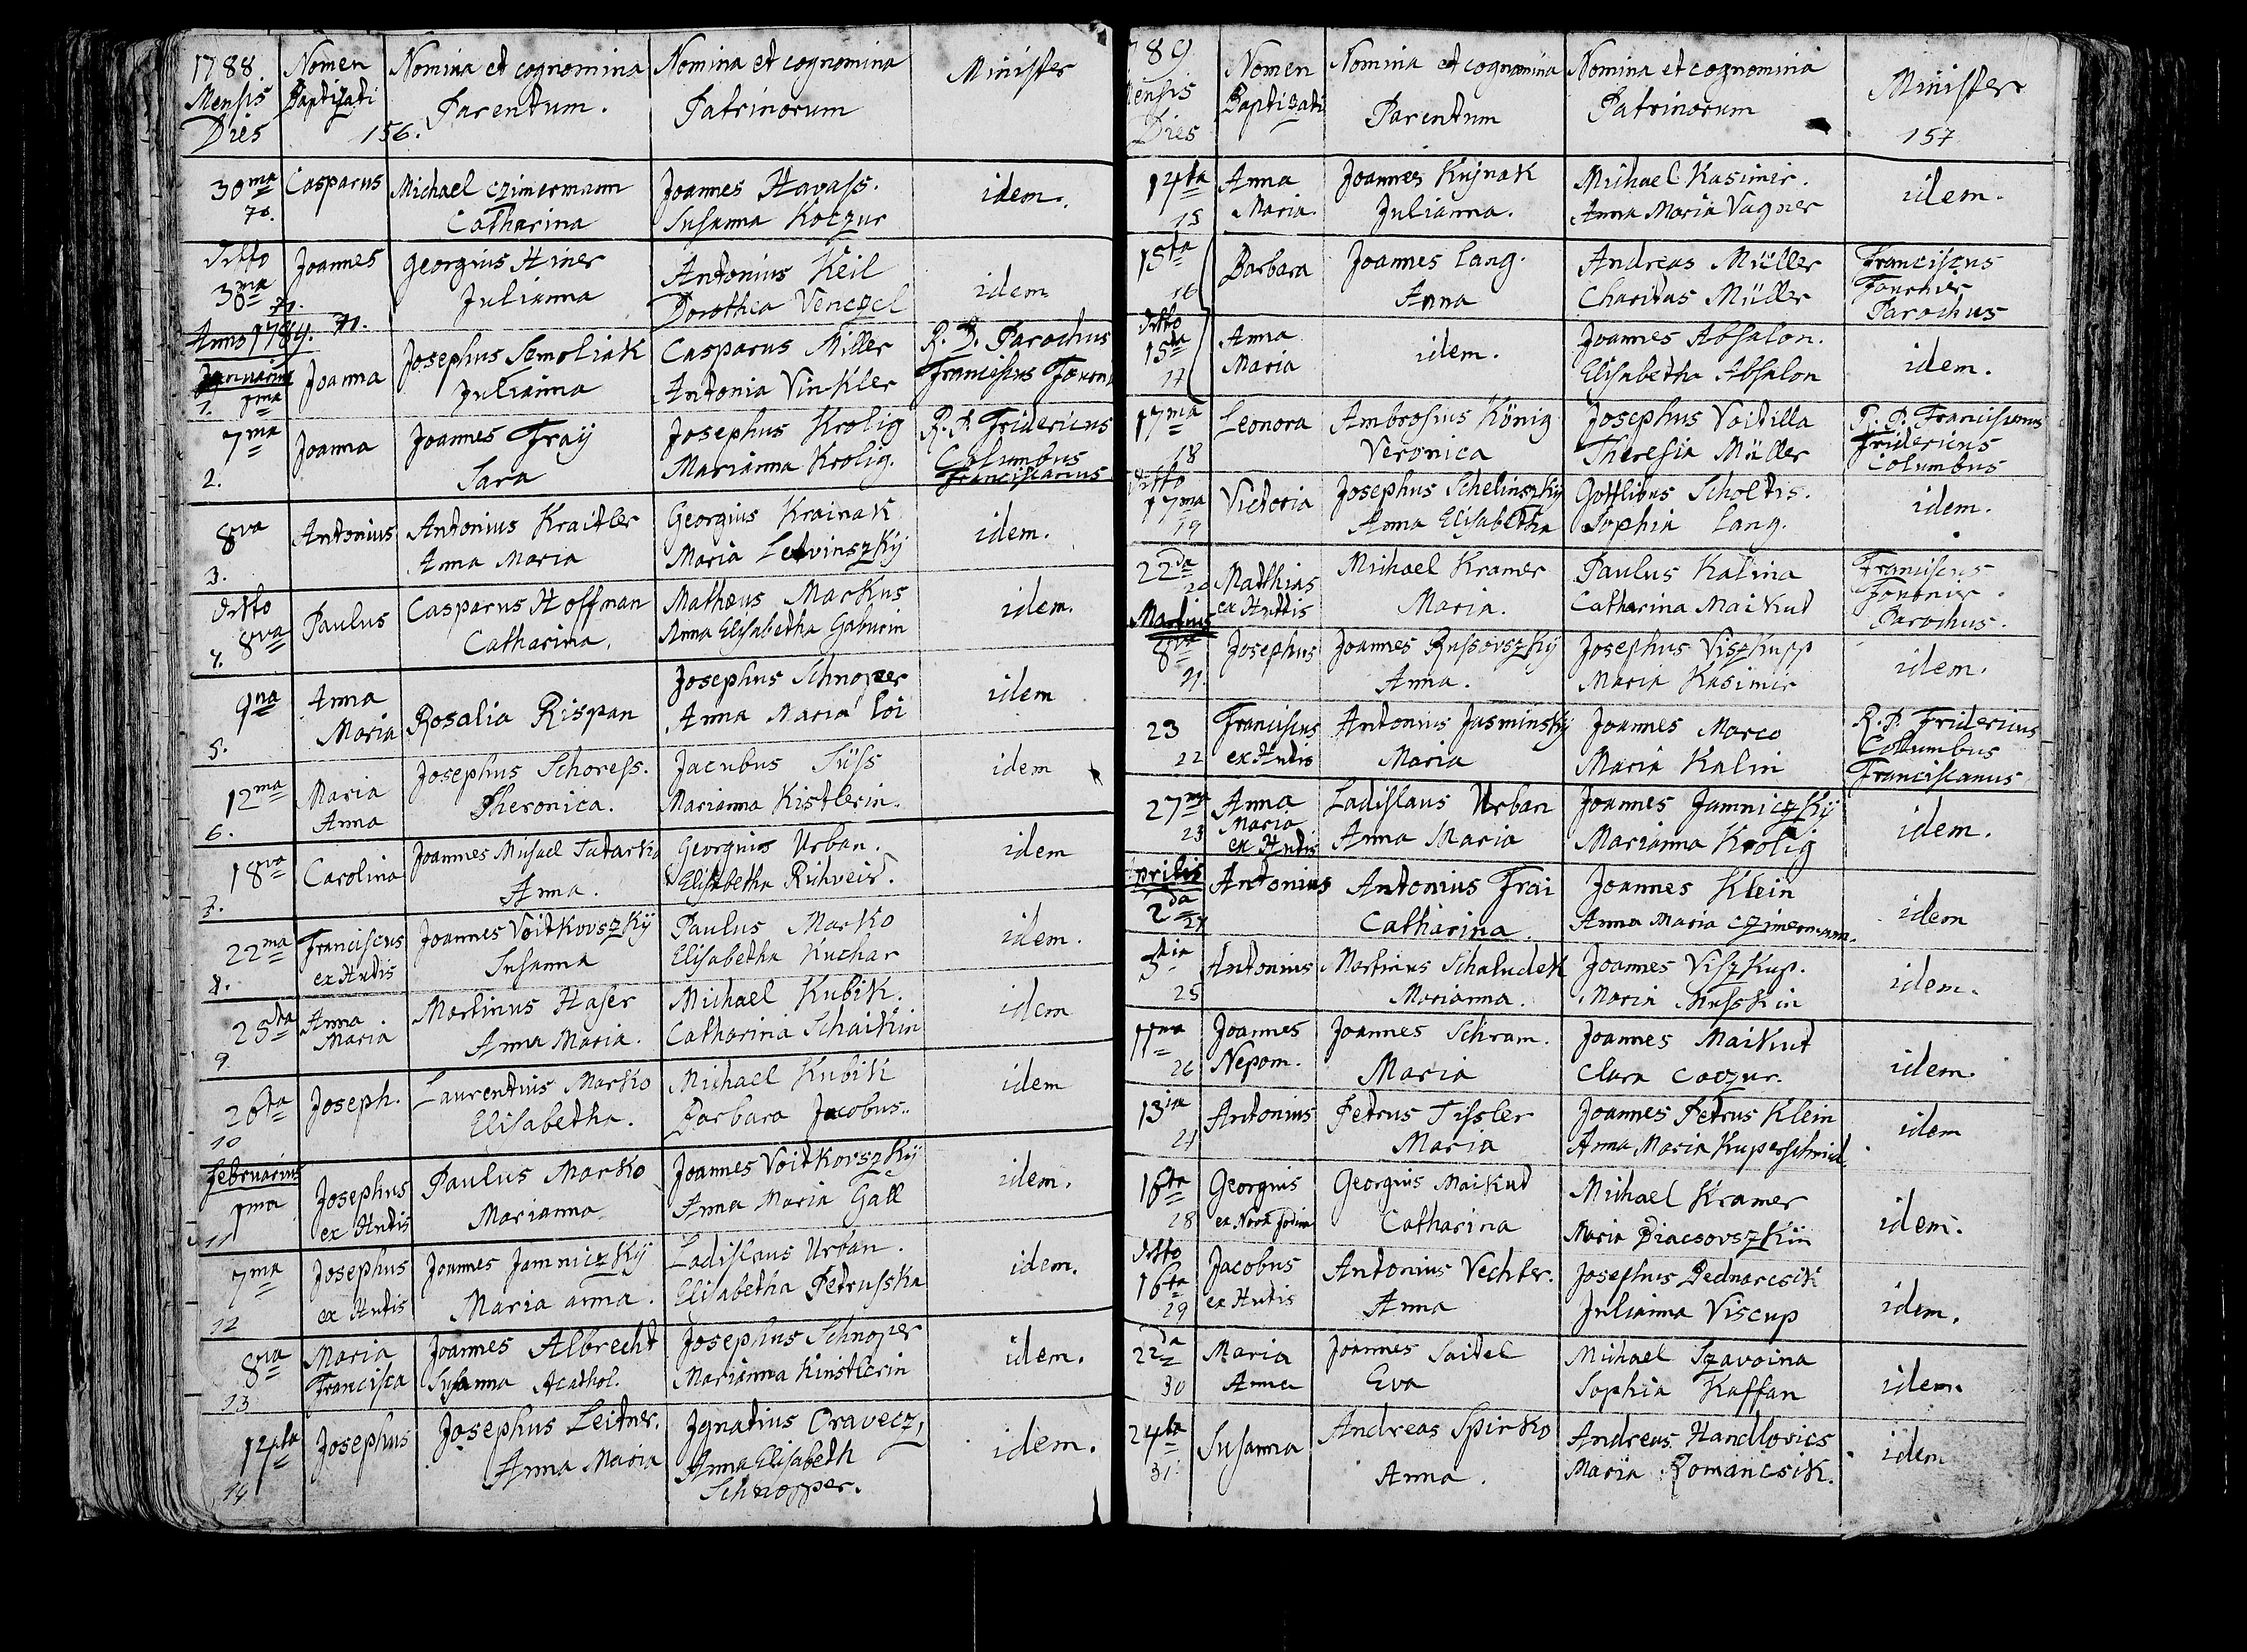 1788. Nomen Nomina et cognomina Nomina et cognomina Minister
Mensis Baptizati Parentum. Patrinorum
Dies 156.
30ma Casparus Michael Czimermann Joannes Havass. idem.
70. Catharina Susanna Koczur
ditto Joannes Georgius Hiner Antonius Keil idem
30ma 71. Julianna Dorothea Venegel
Anno 1789. 71.
Januarius Joanna Josephus Semoliak Casparus Miller R. D. Parochus
1. 1ma Julianna Antonia Vinkler Franciscus
7ma Joanna Joannes Fraÿ Josephus Krolig R. P. Fridericus
2. Sara Marianna Krolig. Columbus
Franciscanus
8va Antonius Antonius Kraitler Georgius Krainak idem.
3. Anna Maria Maria
ditto Paulus Casparus Hoffman Mathæus Markus idem.
4. 8va Catharina. Anna Elisabetha Gaburin
9na Anna Rosalia Rispan Josephus Schnoper idem
5. Maria Anna Maria Loi
12ma Maria Josephus Schoress. Jacobus Süss idem
6. Anna Theronica. Marianna Kistlerin.
18va Carolina Joannes Michael Tatarko Georgius Urban. idem
7. Anna. Elisabetha Richveis.
22ma Franciscus Joannes Voitkovszkÿ Paulus Marko idem.
8. ex Hutis Susanna Elisabetha Kuchar
25ta Anna Martinus Haser Michael Kubik. idem
9. Maria Anna Maria. Catharina Schaitkin
26ta Joseph. Laurentius Marko Michael Kubik idem
10 Elisabetha. Barbara Jacobus.
Februarius
1ma Josephus Paulus Marko Joannes Voitkovszkÿ idem.
11 ex Hutis Marianna Anna Maria Gall
7ma Josephus Joannes Jamniczkÿ Ladislaus Urban. idem.
12 ex Hutis Maria anna. Elisabetha Petrusska
8va Maria Joannes Albrecht Josephus Schnoper idem.
13 Francisca Susanna Acathol. Marianna Kinstlerin
14ta Josephus Josephus Leitner. Ignatius Oravecz, idem.
14 Anna Maria Anna Elisabeth
Schnopper.
789 Nomen Nomina et cognomina Nomina et cognomina Minister
Mensis Baptizati Parentum Patrinorum
Dies 157
14ta Anna Joannes Kujnak Michael Kasimir. idem.
15 Maria. Julianna. Anna Maria Vagner
15ta Barbara Joannes Lang. Andreas Müller Franciscus
16 Anna Charitas Müller
Parochus
ditto Anna idem. Joannes Absalon. idem.
15ta Maria Elisabetha Absalon
17
17ma Leonora Ambrosius König Josephus Voitilla R. P. Franciscanus
18 Veronica Theresia Müller Fridericus
Columbus
ditto
17ma Victoria Josephus Schelinszkÿ Gottlibus Scholtis. idem.
19 Anna Elisabetha Sophia Lang.
22da Matthias Michael Kramer Paulus Kalina Franciscus
20 ex Huttis Maria. Catharina Maikut
Parochus.
Martius
8va Josephus Joannes Russovszkÿ Josephus Viszkupp idem.
21 Anna. Maria Kasimir
23 Franciscus Antonius Jasminskÿ Joannes Marco R. P. Fridericus
22 ex Hutis Maria Maria Kalin Collumbus
Franciscanus
27ma Anna Ladislaus Urban Joannes Jamniczkÿ idem.
23 Maria Anna Maria Marianna Krolig
ex Hutis
prilis Antonius Antonius Frai Joannes Klein idem
2da 24 Catharina. Anna Maria Czimermann.
5 Antonius Martinus Schaludek Joannes Viszkup. idem.
25 Marianna. Maria Musskin
11ma Joannes Joannes Schram. Joannes Maikut idem.
26 Nepom. Maria Clara Coczur.
13 Antonius Petrus Tissler Joannes Petrus Klein idem
27 Maria Anna Maria Kuperschmid.
16ta Georgius Georgius Maikut Michael Kramer idem.
28 ex Nova fodina Catharina Maria
ditto
16ta Jacobus Antonius Vechter. Josephus Bednarcsik idem.
29 ex Hutis Anna Julianna Viscup
22da Maria Joannes Saitel Michael Szavoina idem.
30 Anna Eva Sophia Kaffan
24ta Susanna Andreas Spirko Andreas Handlovics idem
31. Anna. Maria Romancsik.